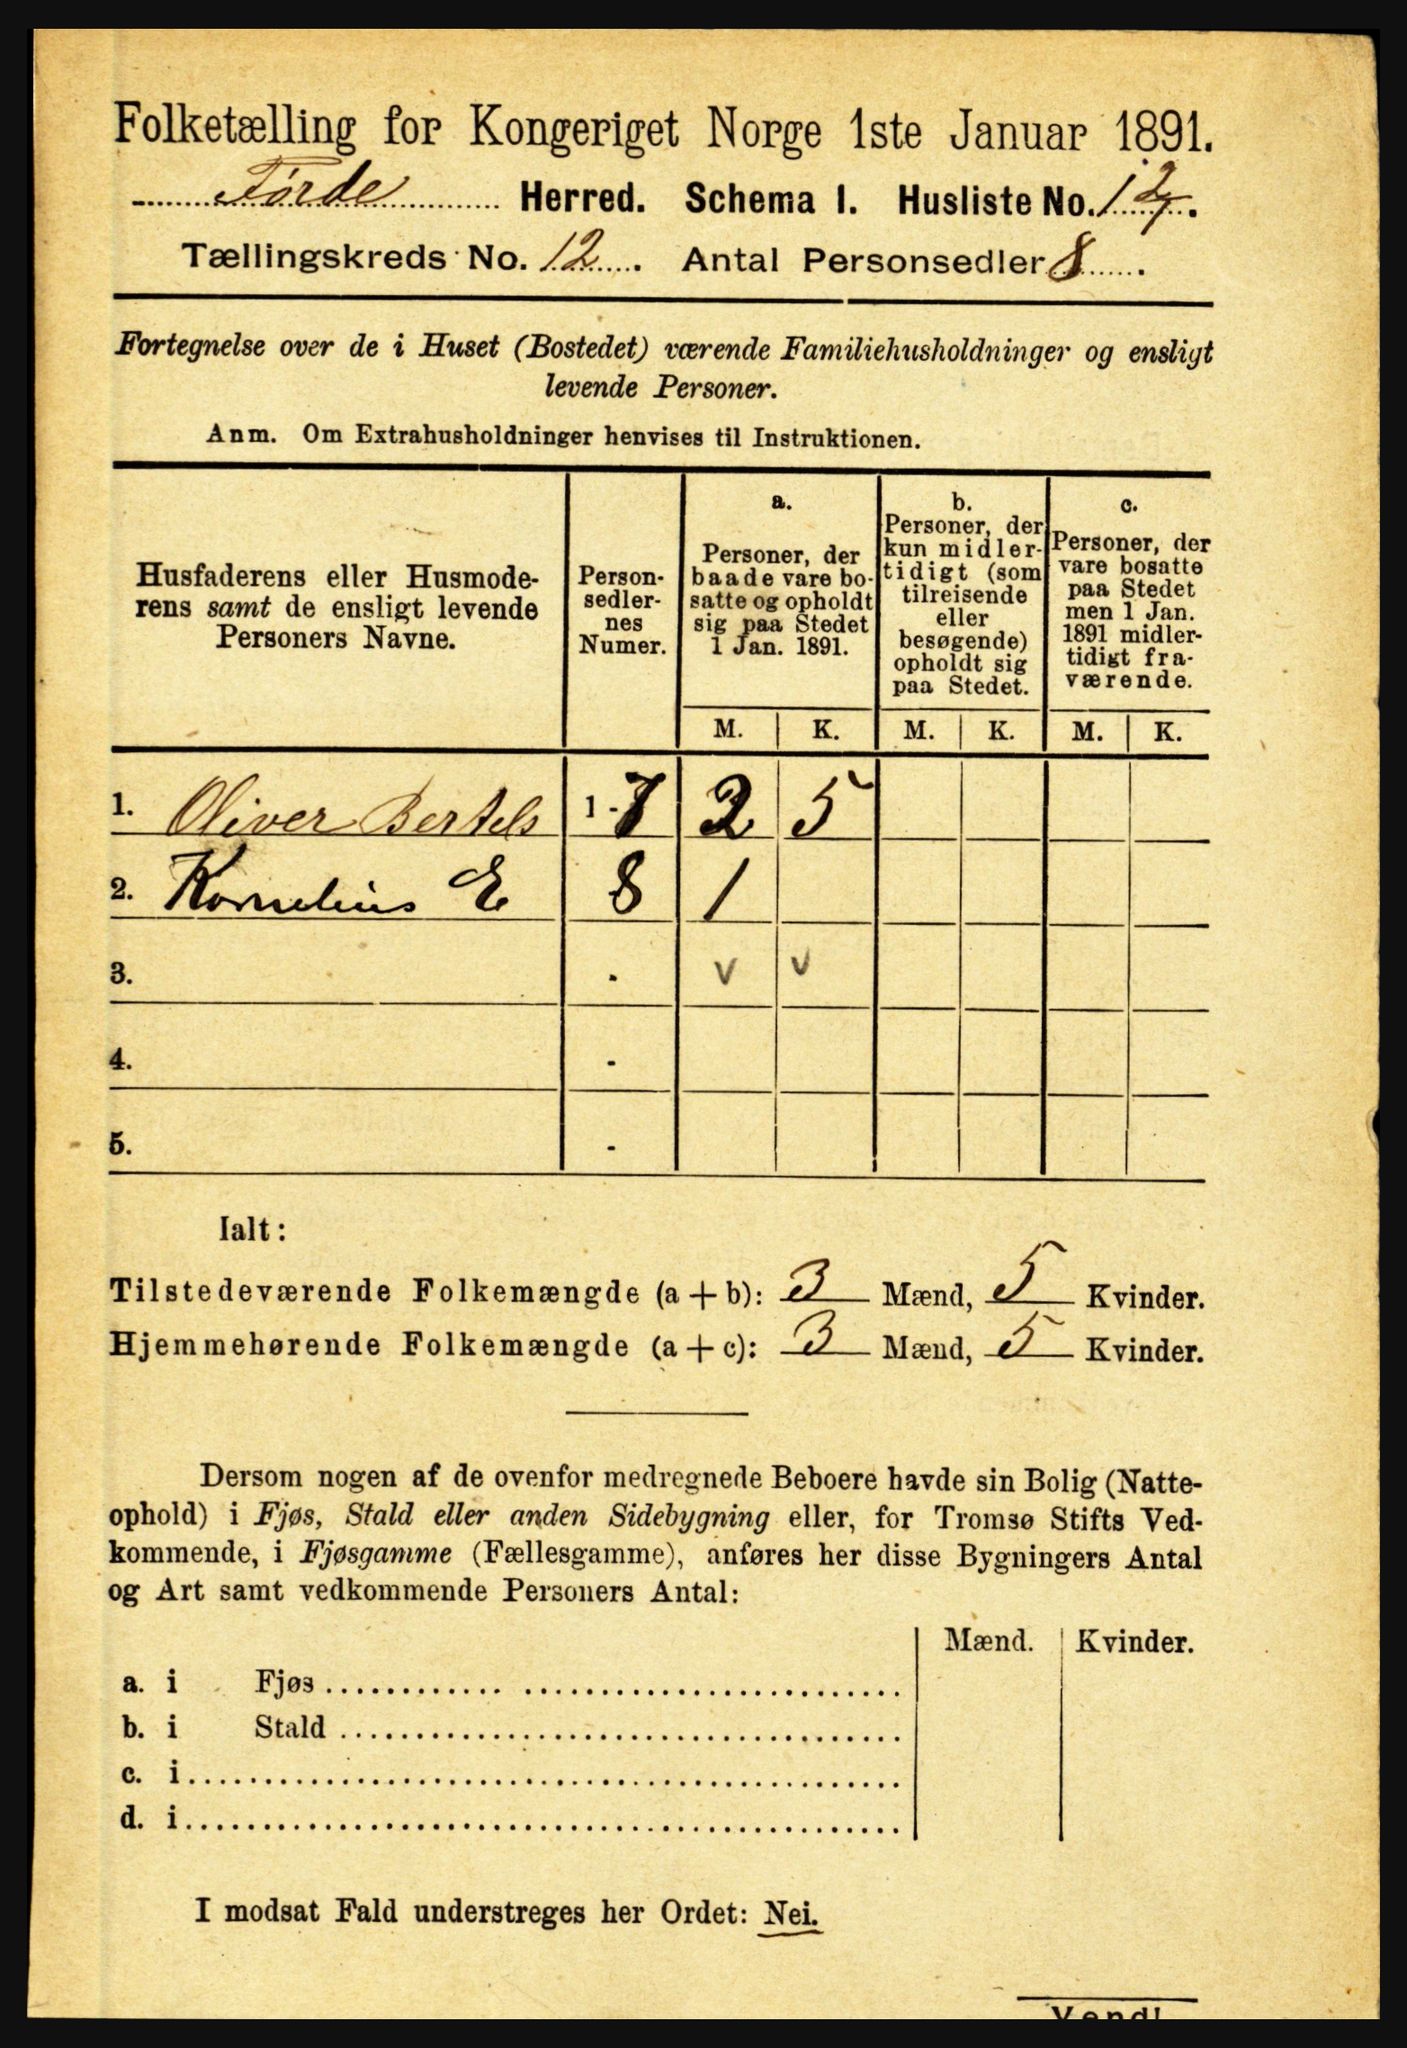 Folketælling for Kongeriget Norge 1ste Januar 1891.
Førde Herred. Schema I. Husliste No. 12.
Tællingskreds No. 12. Antal Personsedler 8.
Fortegnelse over de i Huset (Bostedet) værende Familiehusholdninger og ensligt
levende Personer.
Anm. Om Extrahusholdninger henvises til Instruktionen.
Husfaderens eller Husmode-
rens samt de ensligt levende
Personers Navne.
Person-
sedler-
nes
Numer.
a.
Personer, der
baade vare bo-
satte og opholdt
sig paa Stedet
1 Jan. 1891.
b.
Personer, der
kun midler-
tidigt (som
tilreisende
eller
besøgende)
opholdt sig
paa Stedet.
c.
Personer, der
vare bosatte
paa Stedet
men 1 Jan.
1891 midler-
tidigt fra-
værende.
M. K. M. K. M. K.
1. Oliver Bertels 1-7 2 5
2. Kornelius E 8 1
3. . v v
4. -
5. -
Ialt:
Tilstedeværende Folkemængde (a + b): 3 Mænd, 5 Kvinder.
Hjemmehørende Folkemængde (a + c): 3 Mænd, 5 Kvinder.
Dersom nogen af de ovenfor medregnede Beboere havde sin Bolig (Natte-
ophold) i Fjøs, Stald eller anden Sidebygning eller, for Tromsø Stifts Ved-
kommende, i Fjøsgamme (Fællesgamme), anføres her disse Bygningers Antal
og Art samt vedkommende Personers Antal:
Mænd. Kvinder.
a. i Fjøs
b. i Stald
c. i
d. i
I modsat Fald understreges her Ordet: Nei.
Vend!